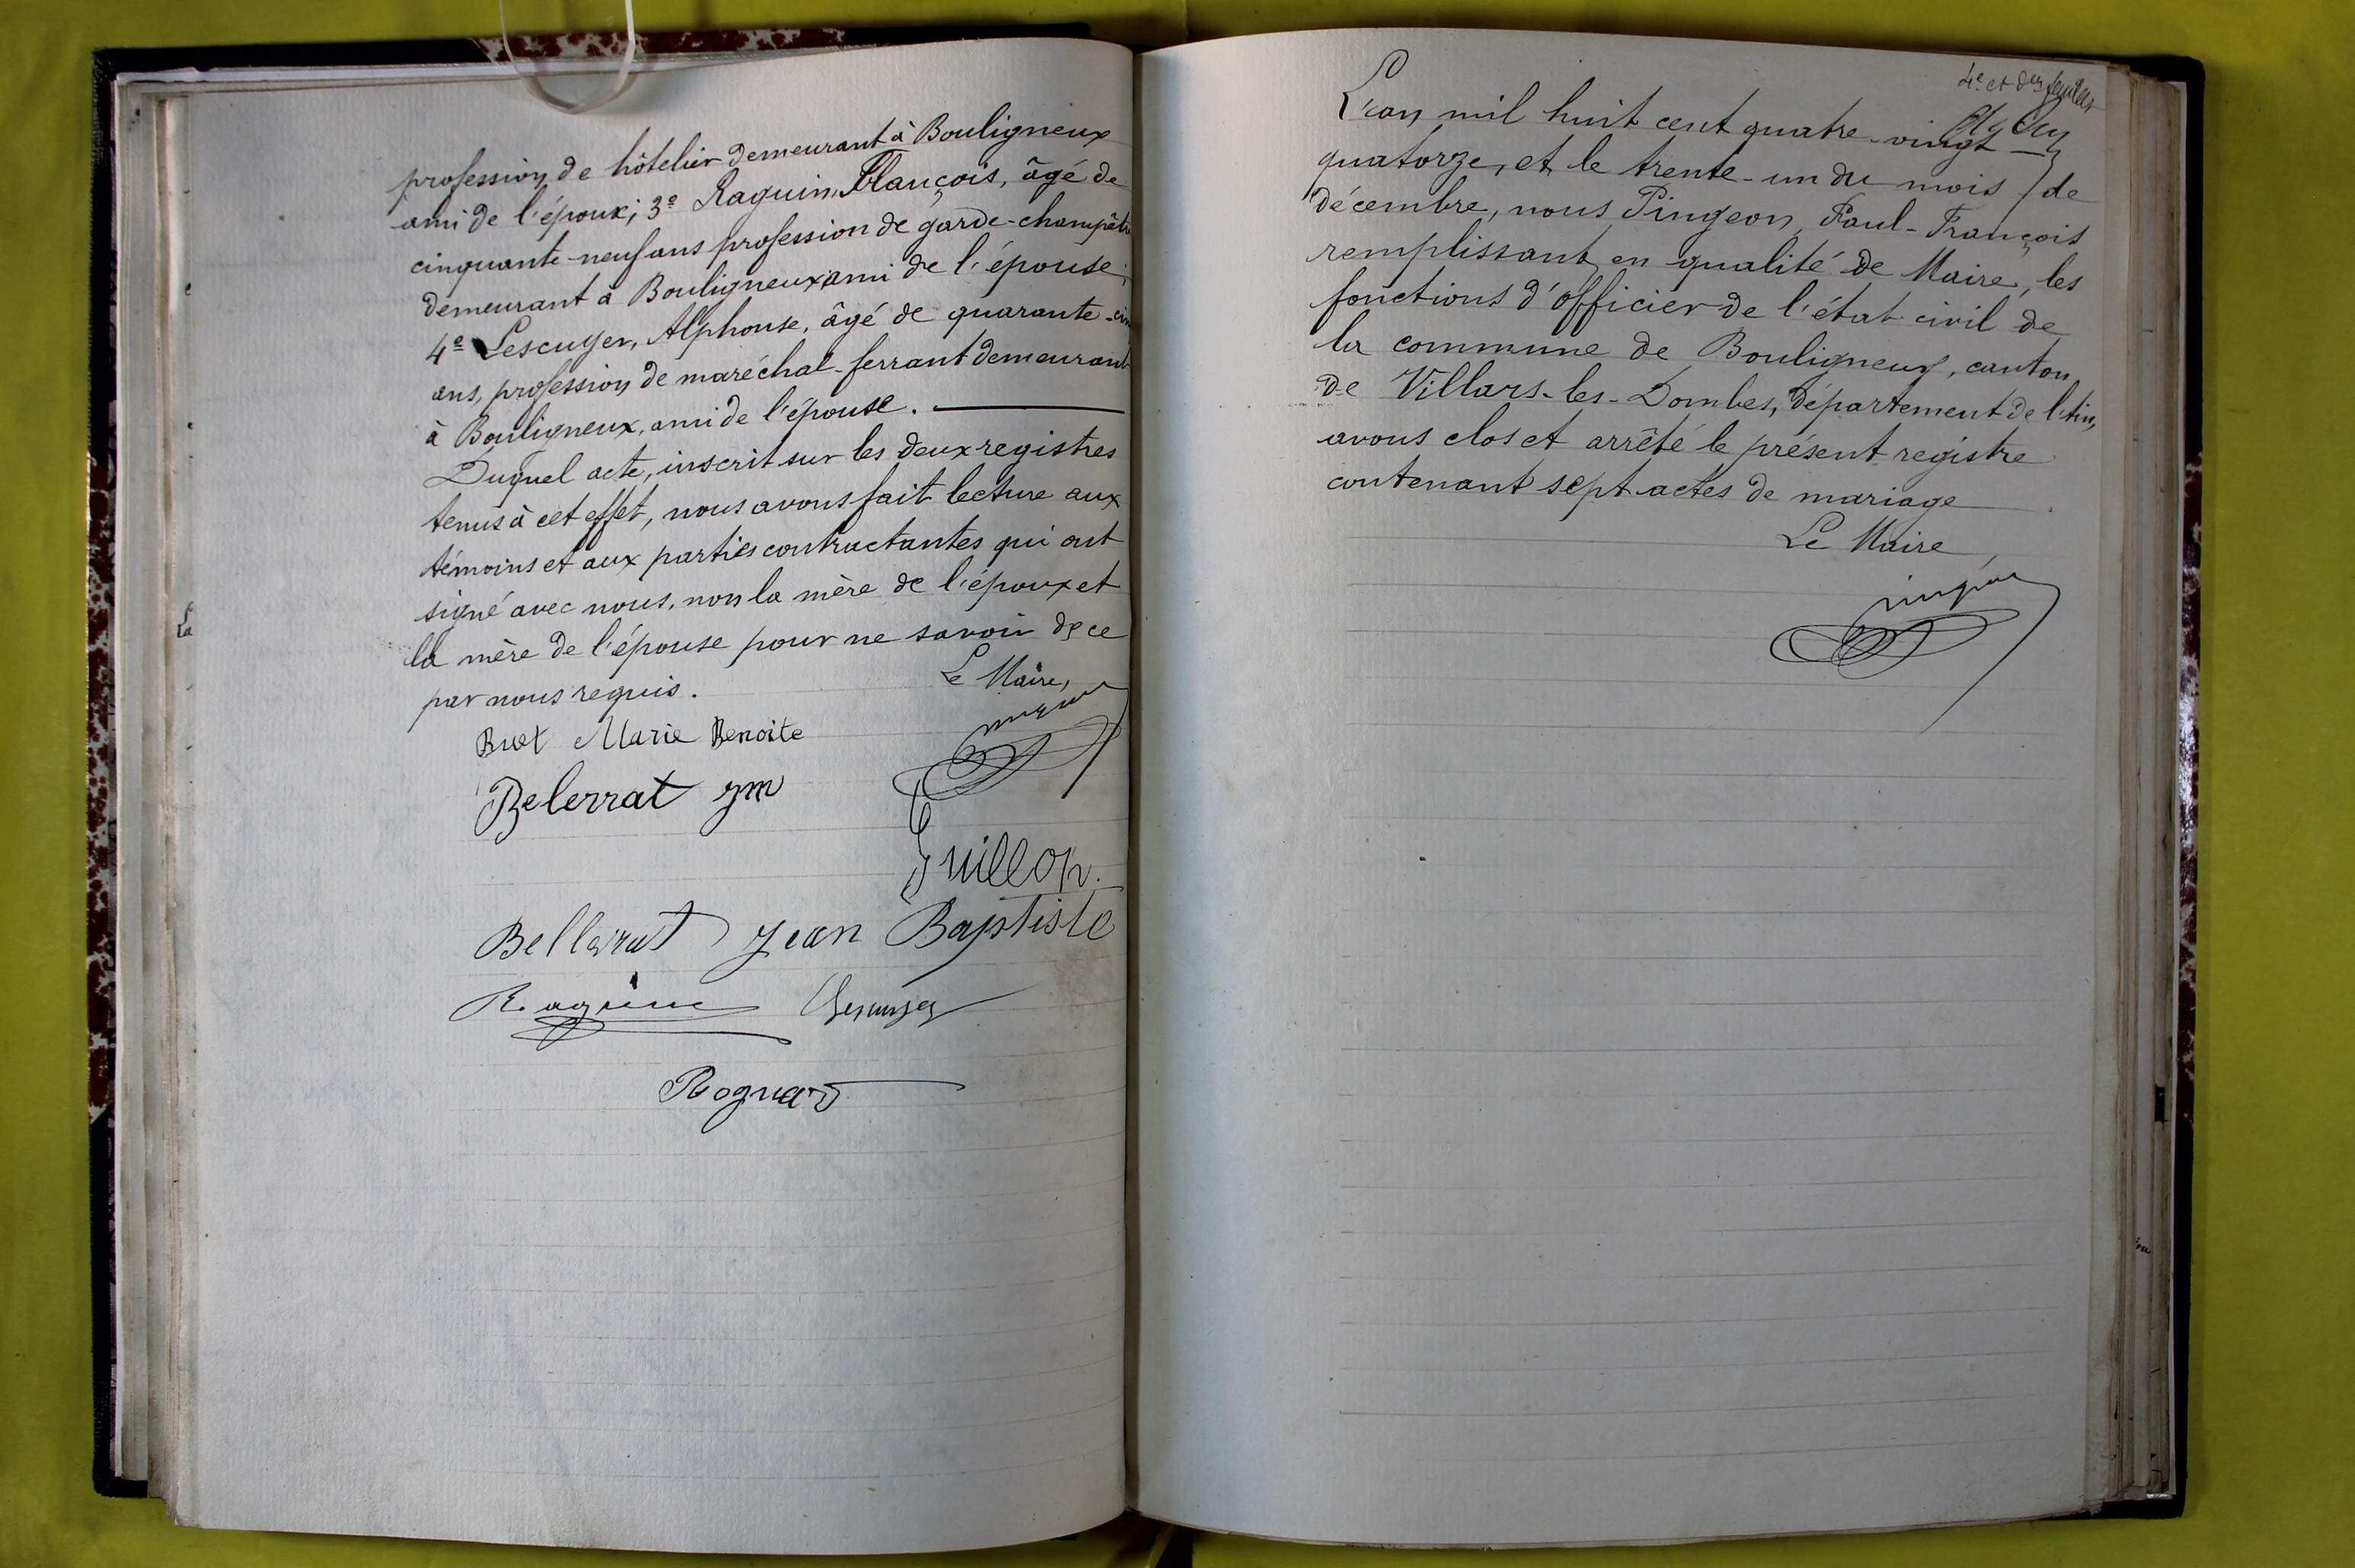 profession de hôtelier demeurant à Bouligneux
ami de l'époux; 3e Raguin, François, âgé de
cinquante-neuf ans profession de garde-champêtre
demeurant à Bouligneux ami de l'épouse;
4e Lescuyer, Alphonse, âgé de quarante-cinq
ans, profession de maréchal-ferrant demeurant
à Bouligneux, ami de l'épouse.
Duquel acte, inscrit sur les deux registres
tenus à cet effet, nous avons fait lecture aux
témoins et aux parties contractantes qui ont
signé avec nous, non la mère de l'époux et
la mère de l'épouse pour ne savoir de ce
par nous requis.
Le Maire,
Buet Marie Benoite
Belerrat jm
Guillon.
Bellerrat Jean Baptiste
Raguin Lescuyer
Rognard
4e et der feuillet
L'an mil huit cent quatre-vingt
quatorze, et le trente-un du mois de
décembre, nous Pingeon, Paul-François
remplissant en qualité de Maire, les
fonctions d'officier de l'état civil de
la commune de Bouligneux, canton
de Villars-les-Dombes, département de l'Ain,
avons clos et arrêté le présent registre
contenant sept actes de mariage
Le Maire,
Pingeon